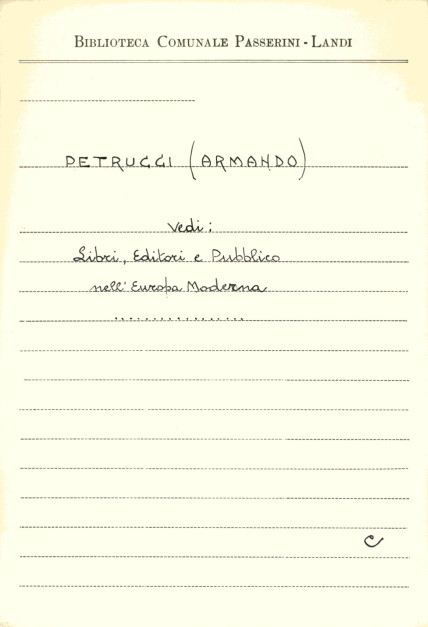 BIBLIOTECA COMUNALE PASSERINI - LANDI
PETRUCCI (ARMANDO)
Vedi:
Libri, Editori e Pubblico
nell'Europa Moderna
.................
C